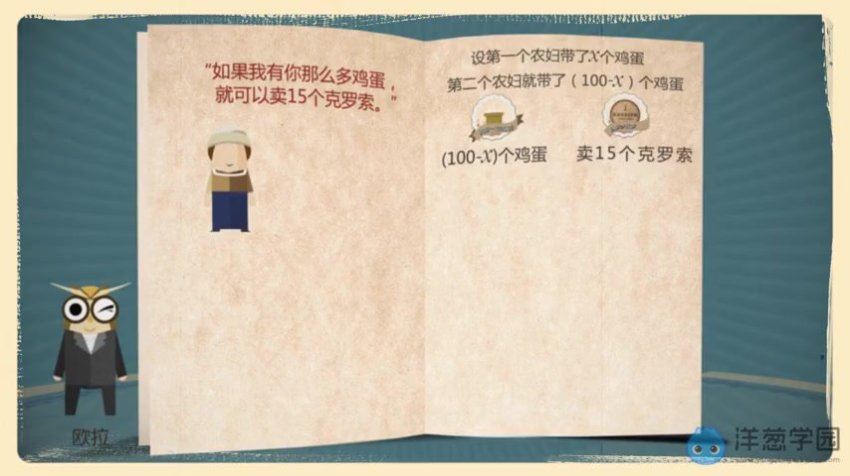 “如果我有你那么多鸡蛋，
就可以卖15个克罗索。”
设第一个农妇带了x个鸡蛋
第二个农妇就带了（100-x）个鸡蛋
(100-x)个鸡蛋
卖15个克罗索
欧拉
洋葱学园